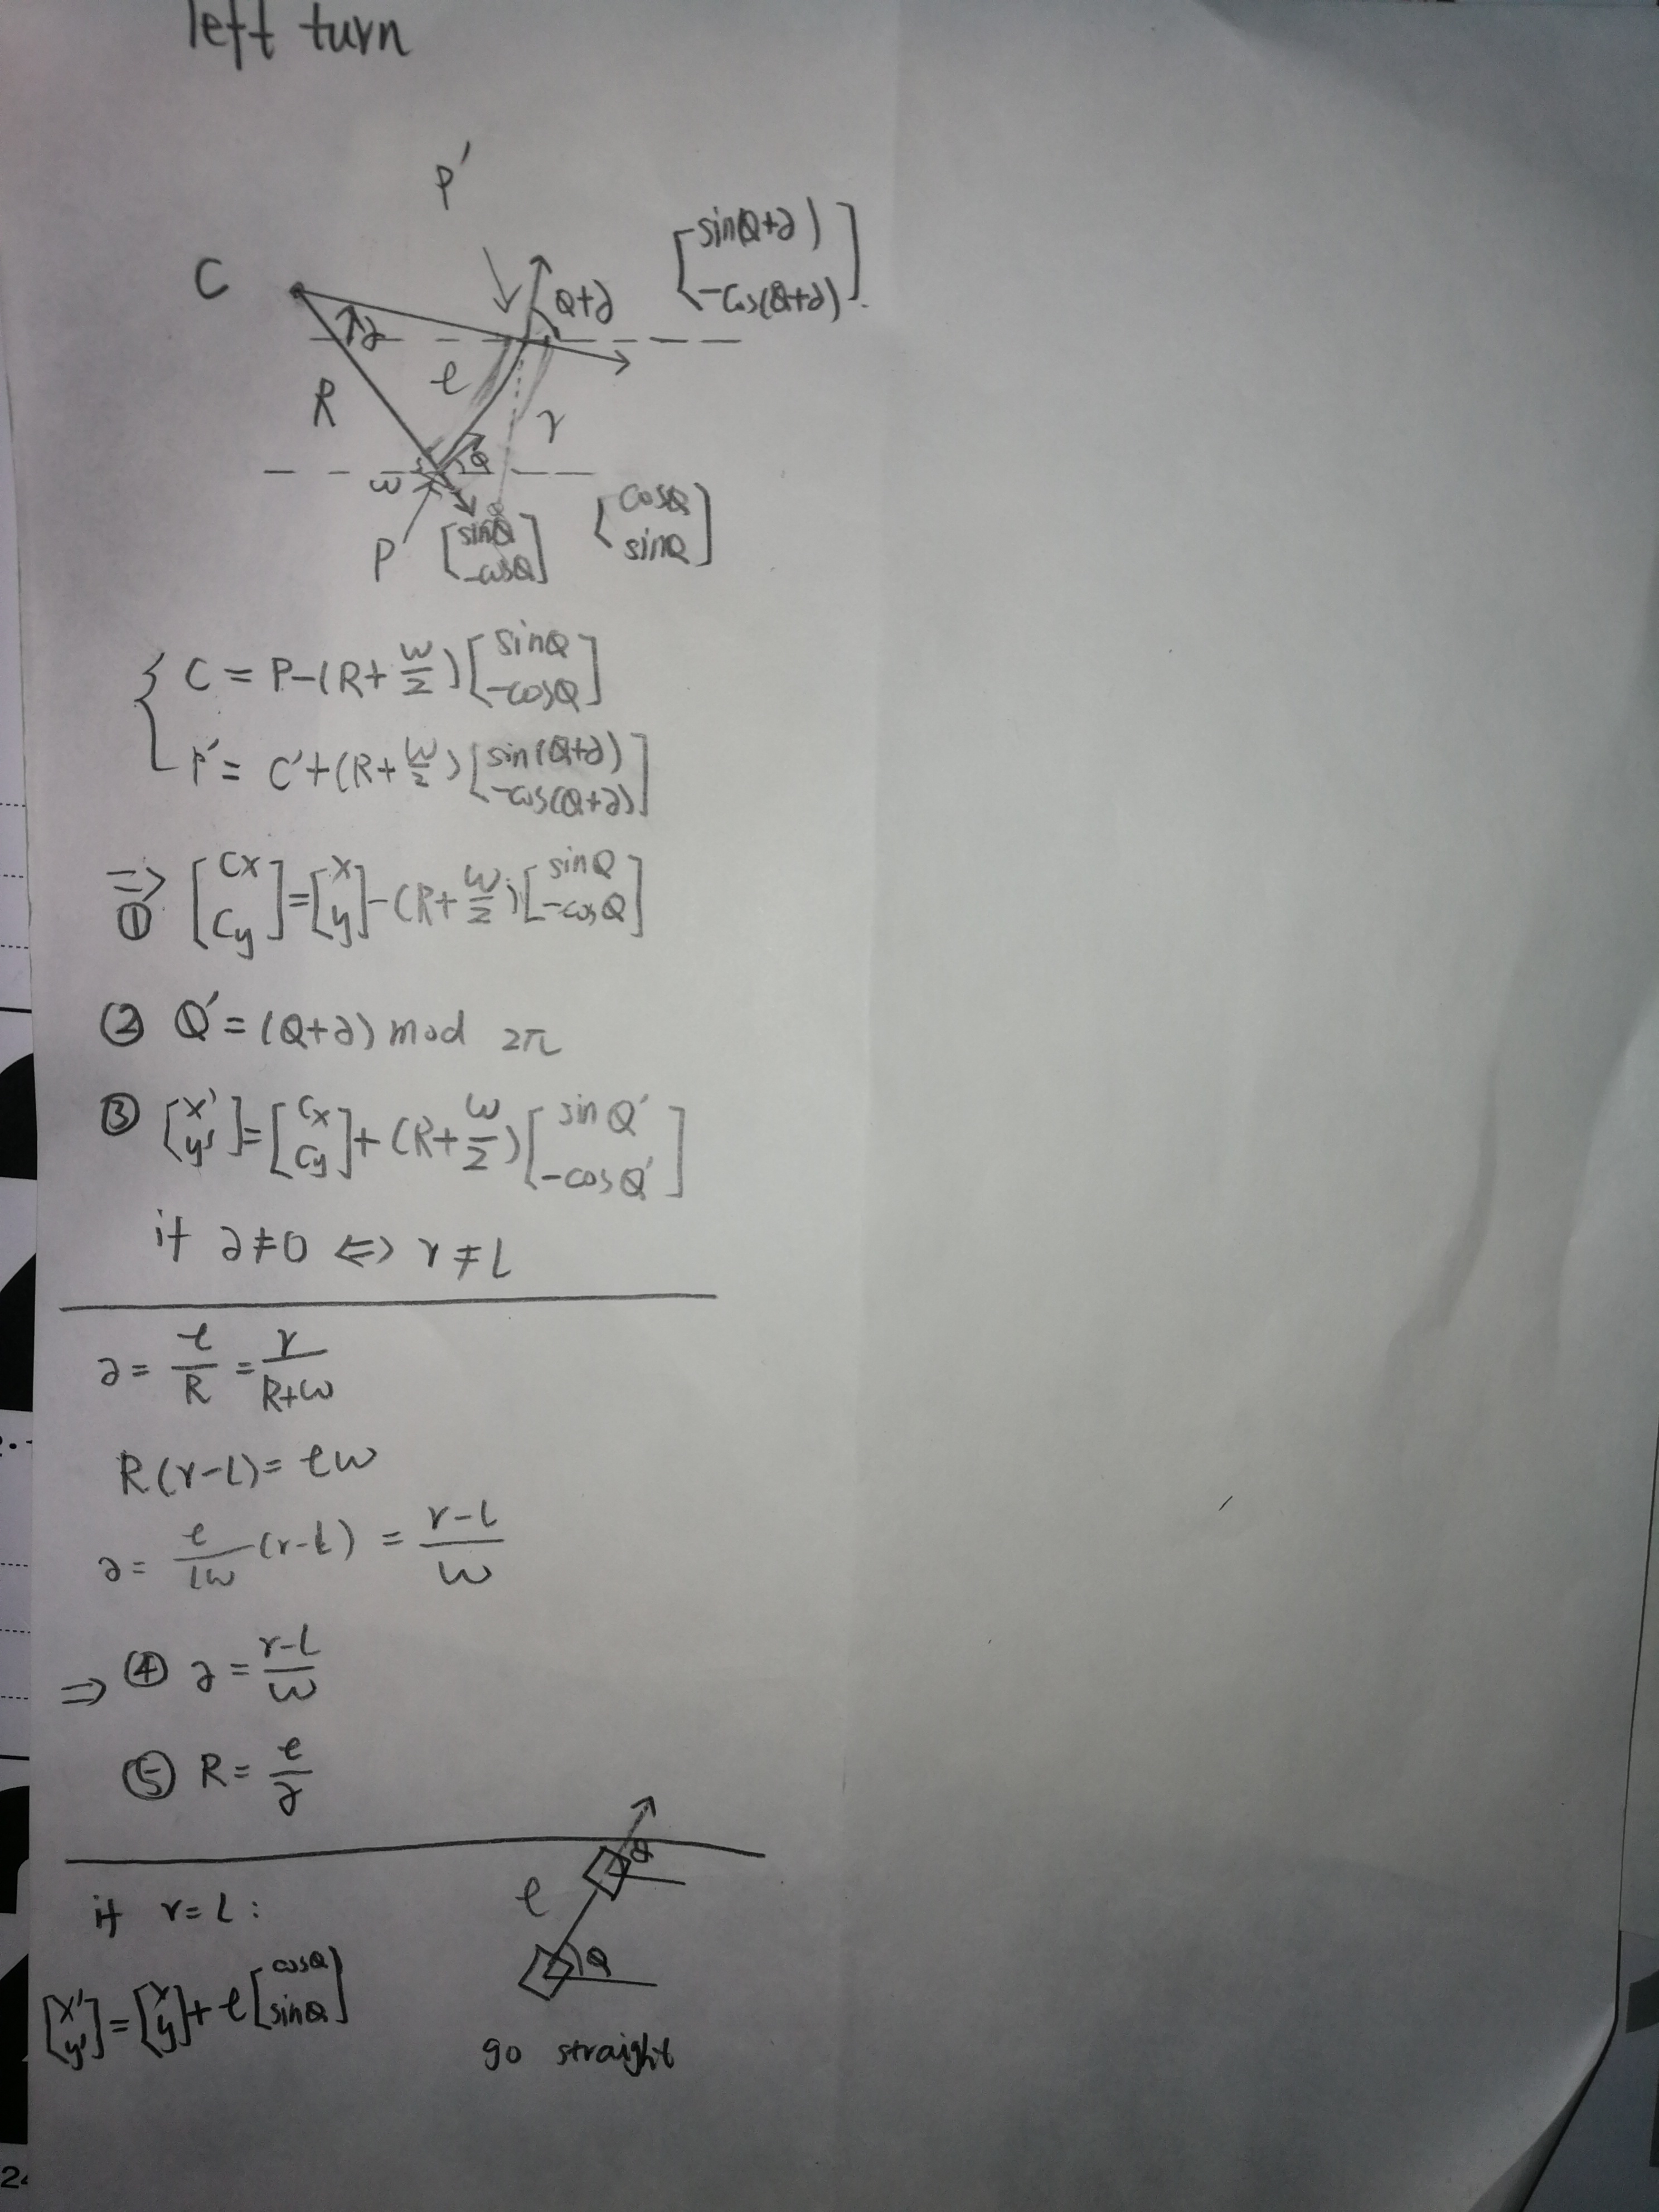 left turn
P'
C
[sin(Q+∂)
-cos(Q+∂)]
Q+∂
∂
l
R
r
Q
w
P
[sinQ
-cosQ]
[cosQ
sinQ]
{ C = P-(R+w/2)[sinQ
-cosQ]
P' = C'+(R+w/2)[sin(Q+∂)
-cos(Q+∂)]
⇒ ① [Cx
Cy]=[x
y]-(R+w/2)[sinQ
-cosQ]
② Q'=(Q+∂) mod 2π
③ [x'
y']=[Cx
Cy]+(R+w/2)[sinQ'
-cosQ']
if ∂≠0 ⇔ r≠l
∂= l/R = r/(R+w)
R(r-l)= lw
∂= l/lw (r-l) = (r-l)/w
⇒ ④ ∂= (r-l)/w
⑤ R= l/∂
if r=l:
[x'
y']=[x
y]+l[cosQ
sinQ]
l
Q
Q
go straight
24